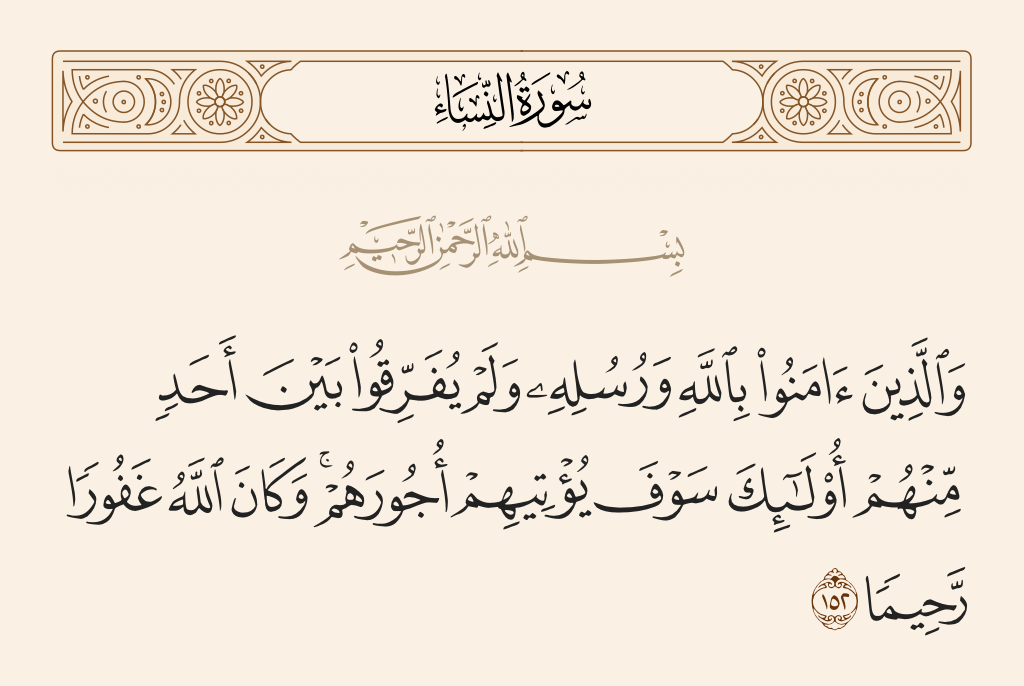 سُورَةُ النِّسَاءِ
بِسْمِ ٱللَّهِ ٱلرَّحْمَٰنِ ٱلرَّحِيمِ
وَٱلَّذِينَ ءَامَنُوا۟ بِٱللَّهِ وَرُسُلِهِۦ وَلَمْ يُفَرِّقُوا۟ بَيْنَ أَحَدٍ
مِّنْهُمْ أُو۟لَٰٓئِكَ سَوْفَ يُؤْتِيهِمْ أُجُورَهُمْ ۚ وَكَانَ ٱللَّهُ غَفُورًا
رَّحِيمًا ١٥٢